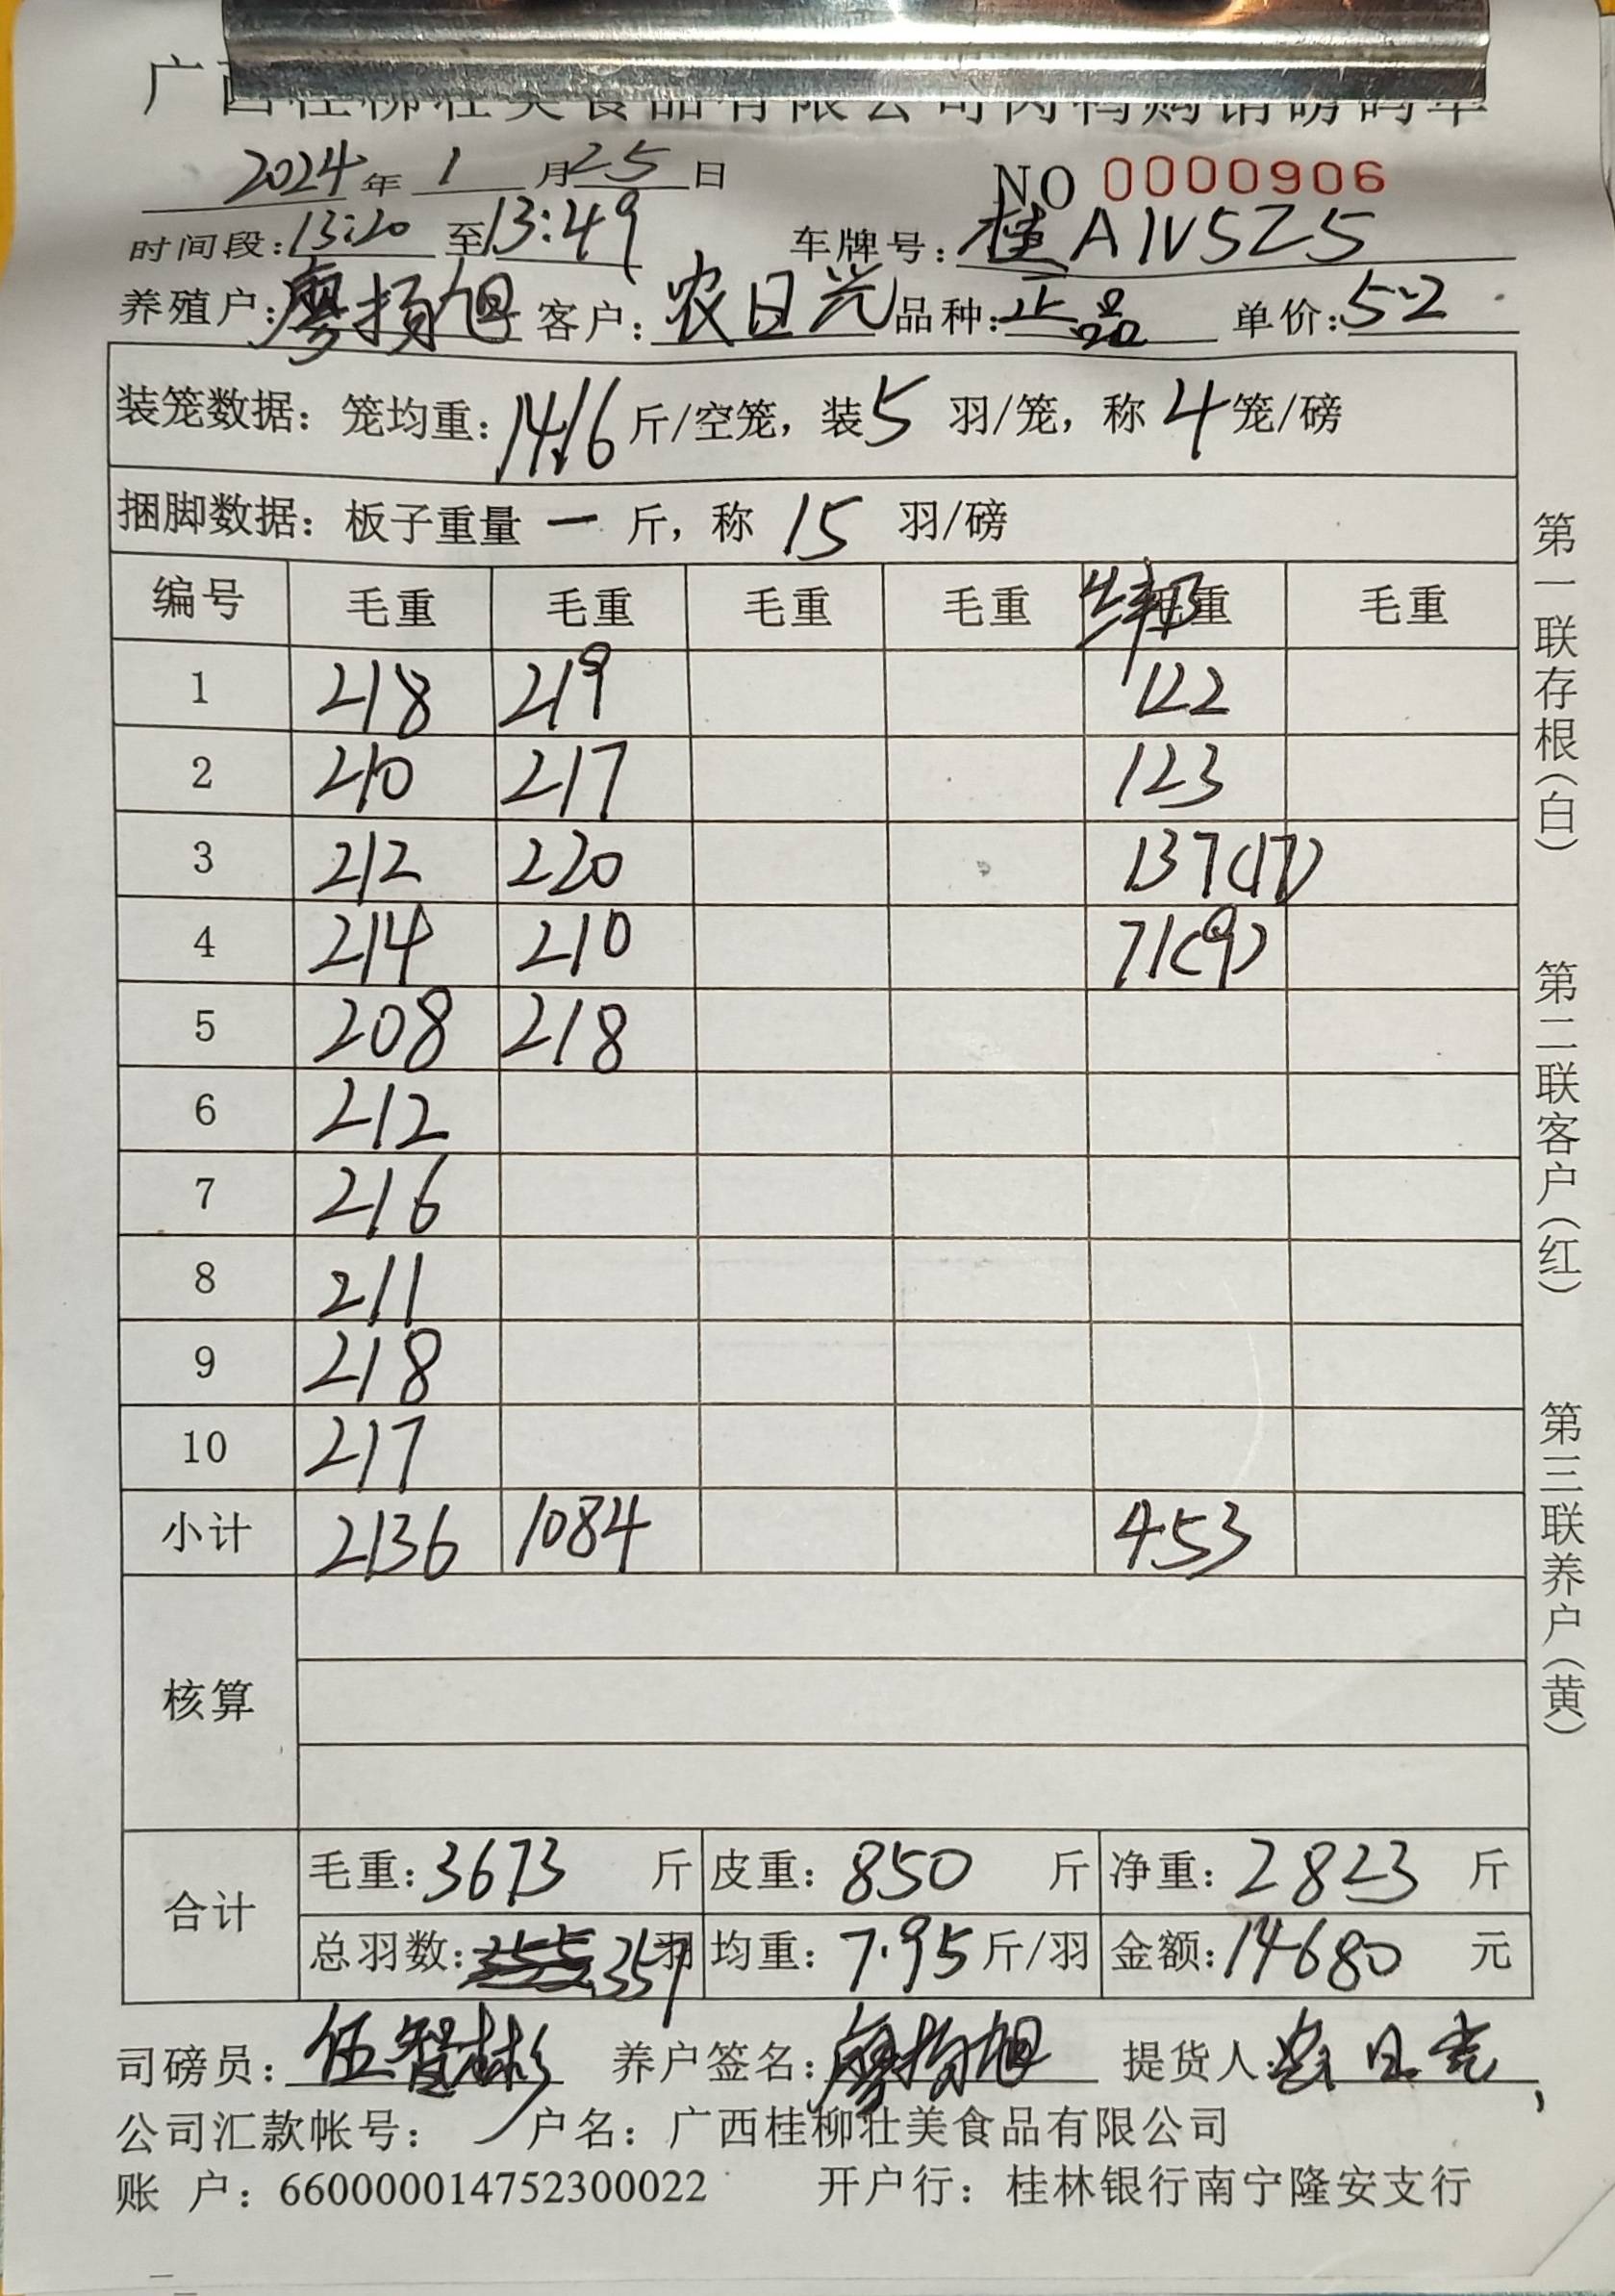 广西桂柳壮美食品有限公司肉鸭购销磅码单
2024年 1 月25日 NO 0000906
时间段:13:20 至13:49 车牌号:桂A1V5Z5
养殖户:廖扬旭 客户:农日光 品种:正品 单价:5.2
装笼数据:笼均重:14.16斤/空笼,装5 羽/笼,称 4笼/磅
捆脚数据:板子重量 一 斤,称 15 羽/磅
编号 毛重 毛重 毛重 毛重 毛重 毛重
1 218 219 122
2 210 217 123
3 212 220 137(17)
4 214 210 71(9)
5 208 218
6 212
7 216
8 211
9 218
10 217
小计 2136 1084 453
核算
合计 毛重:3673 斤 皮重:850 斤 净重:2823 斤
总羽数:357羽 均重:7.95斤/羽 金额:14680 元
司磅员:伍智彬 养户签名:廖扬旭 提货人:农日光
公司汇款帐号: 户名:广西桂柳壮美食品有限公司
账 户:660000014752300022 开户行:桂林银行南宁隆安支行
第一联存根(白)
第二联客户(红)
第三联养户(黄)